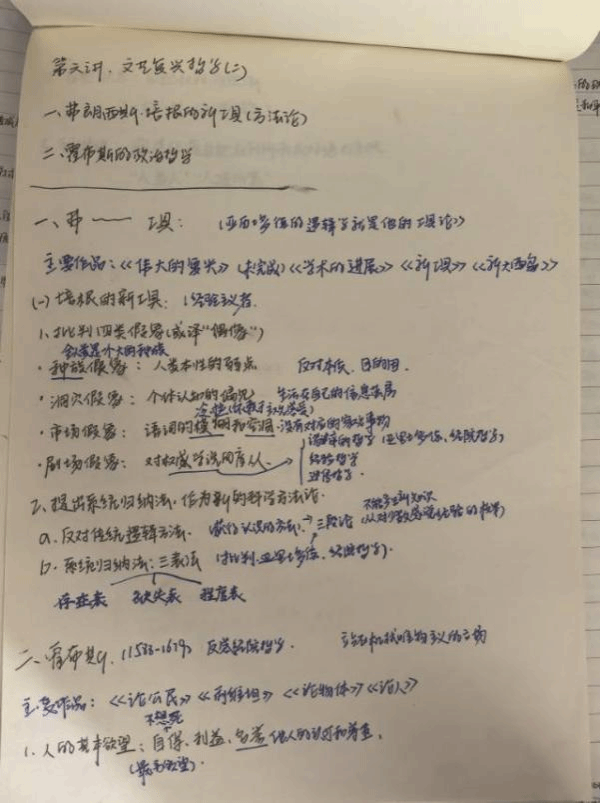 第六讲、文艺复兴哲学(二)
一、弗朗西斯·培根的新工具(方法论)
二、霍布斯的政治哲学
一、弗 —— 工具: (亚里士多德的逻辑学就是他的工具论)
主要作品:《伟大的复兴》(未完成)《学术的进展》《新工具》《新大西岛》
(一)培根的新工具: (经验主义者)
1、批判四类假象(或译“偶像”)
是个大的种族
·种族假象: 人类本性的弱点 反对本质、目的因.
·洞穴假象: 个体认知的偏见 生活在自己的信息茧房
·市场假象: 语词的模糊和空洞 没有对应的客观事物
诡辩的哲学(亚里士多德、经院哲学)
·剧场假象: 对权威学说的盲从. 经验哲学
迷信哲学.
2、提出系统归纳法,作为新的科学方法论.
不能产生新知识
a.反对传统逻辑方法. (获得认识的方法)→三段论 (从对少数感觉经验的
b.系统归纳法:三表法 (批判亚里士多德、经院哲学).
存在表 缺失表 程度表
二、霍布斯.(1588-1679) 反感经院哲学. 站在机械唯物主义的立场
主要作品:《论公民》《利维坦》《论物体》《论人》
不想死
1.人的基本欲望:自保、利益、名誉 他人的认可和尊重.
(最高欲望).